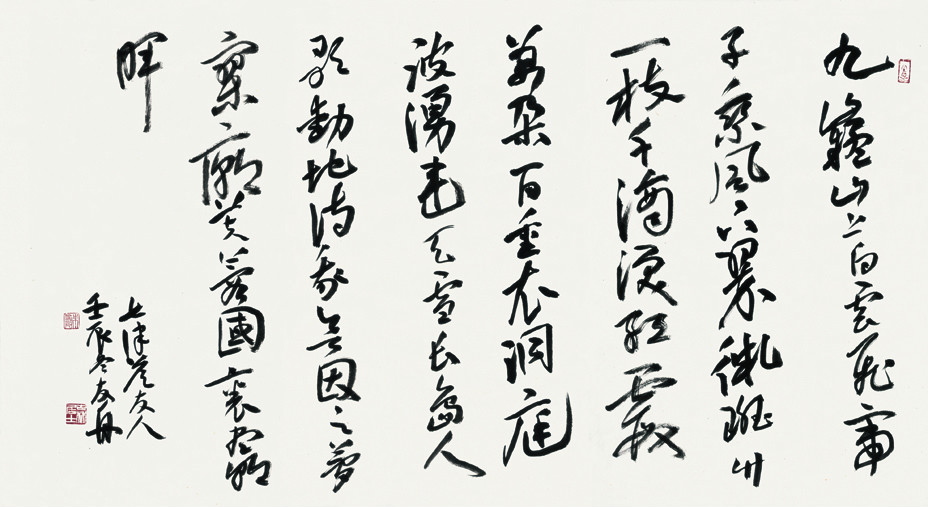 九嶷山上白雲飛帝
子乘風下翠微斑竹
一枝千滴淚紅霞
萬朵百重衣洞庭
波湧連天雪長島人
歌動地詩我欲因之夢
寥廓芙蓉國裏盡朝
暉
七律答友人
壬辰冬友舟